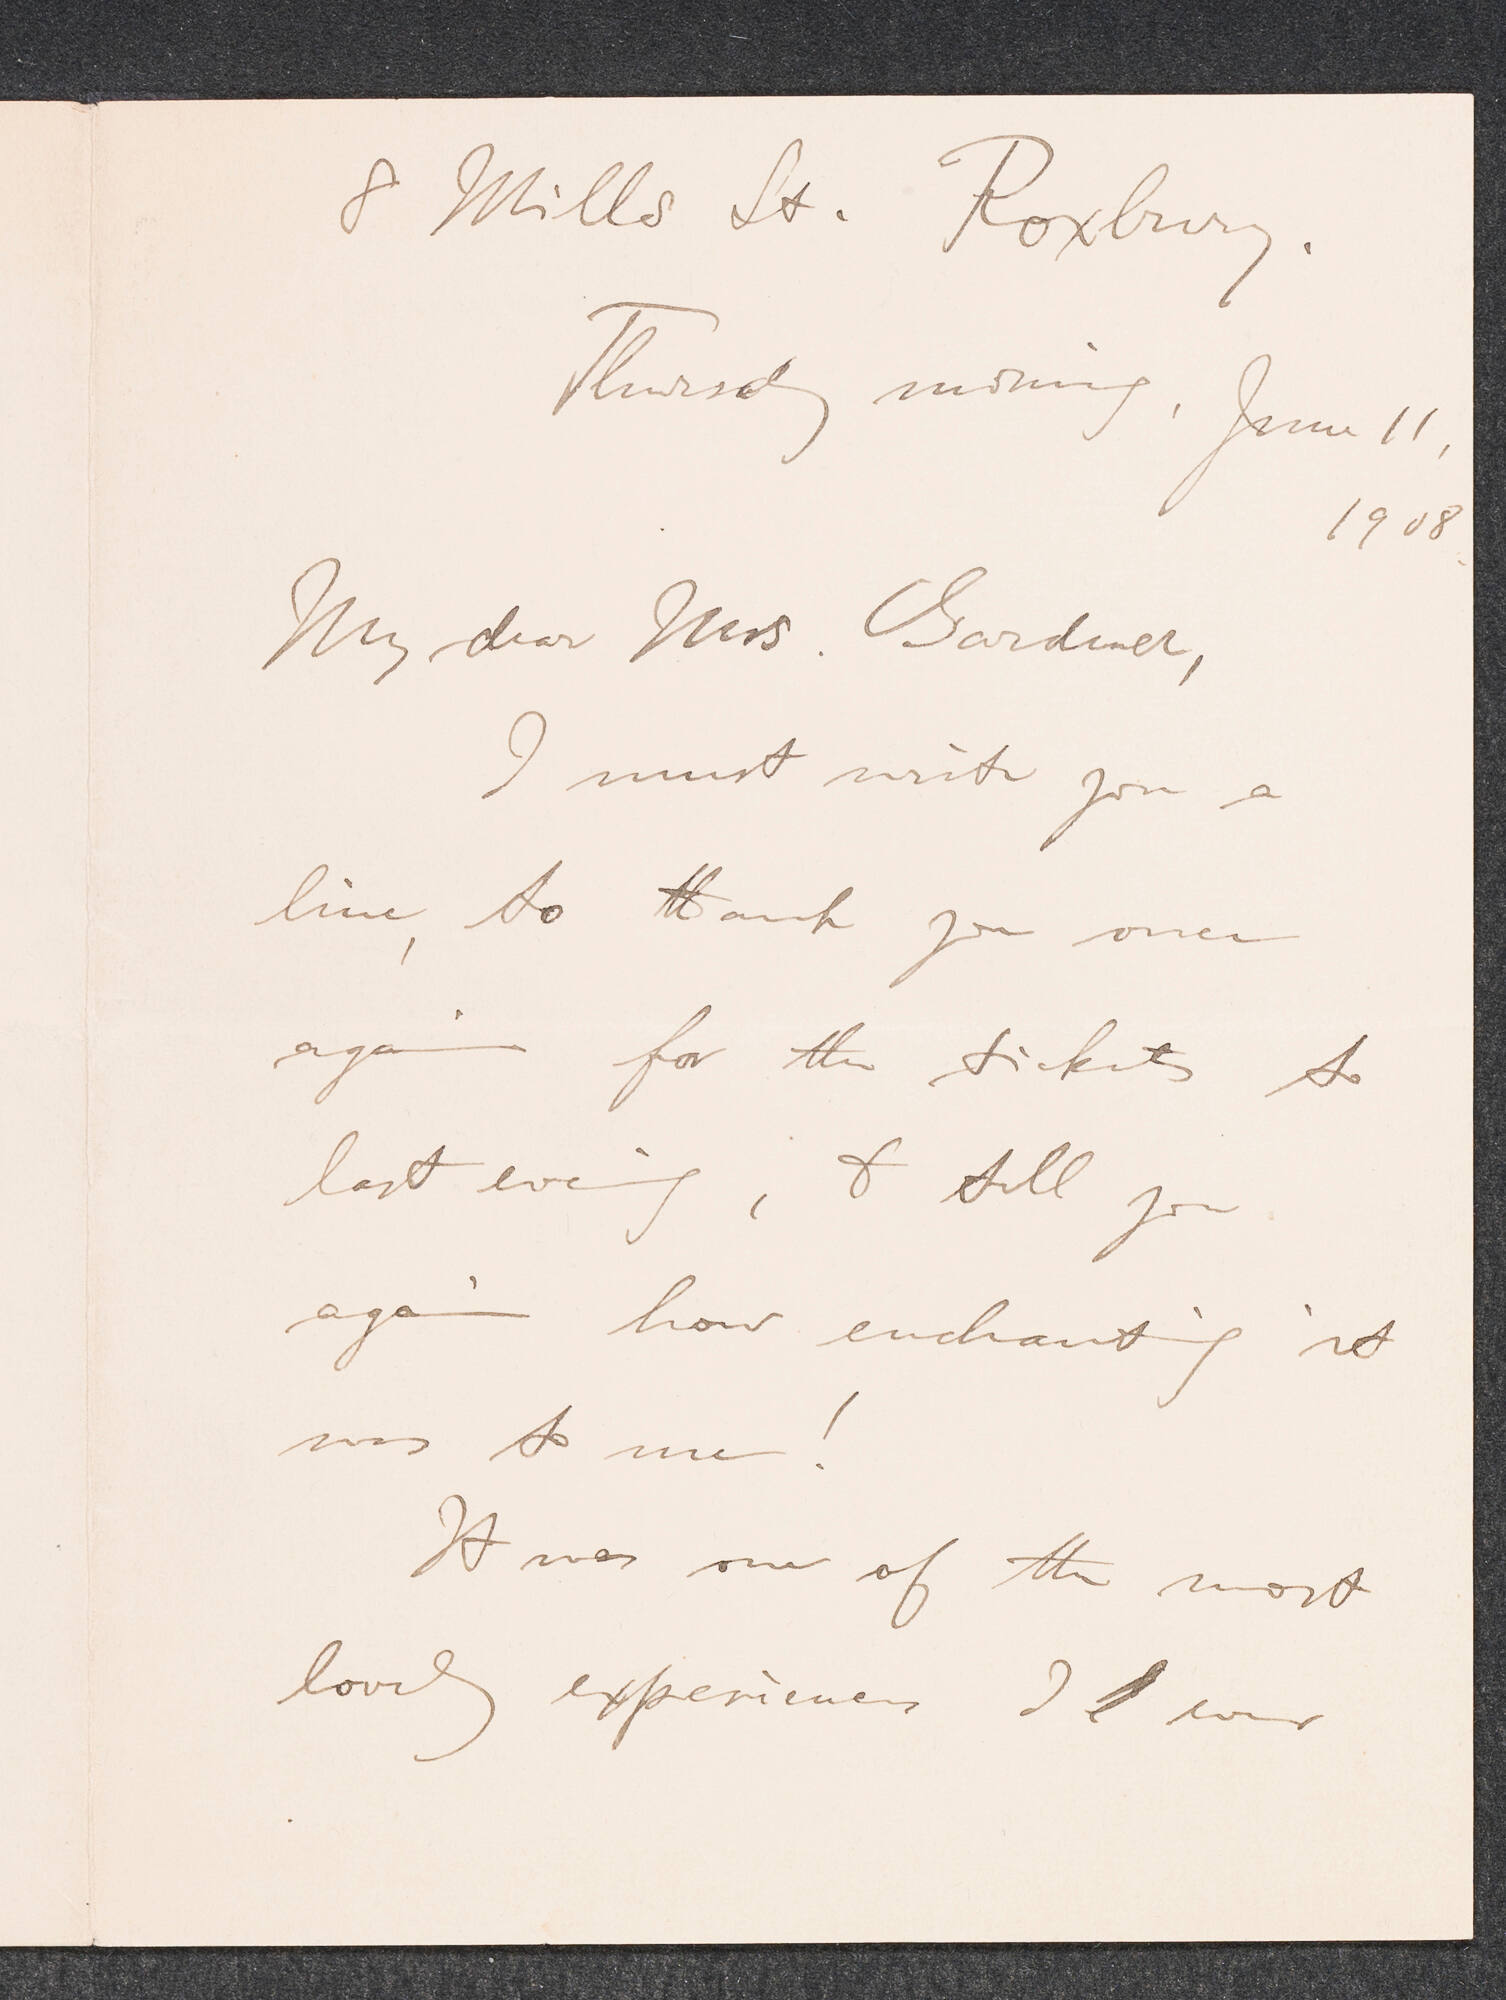 8 Mills St. Roxbury.
Thursday morning, June 11,
1908.
My dear Mrs. Gardner,
I must write you a
line, to thank you once
again for the tickets to
last evening, & tell you
again how enchanting it
was to me!
It was one of the most
lovely experiences I ever